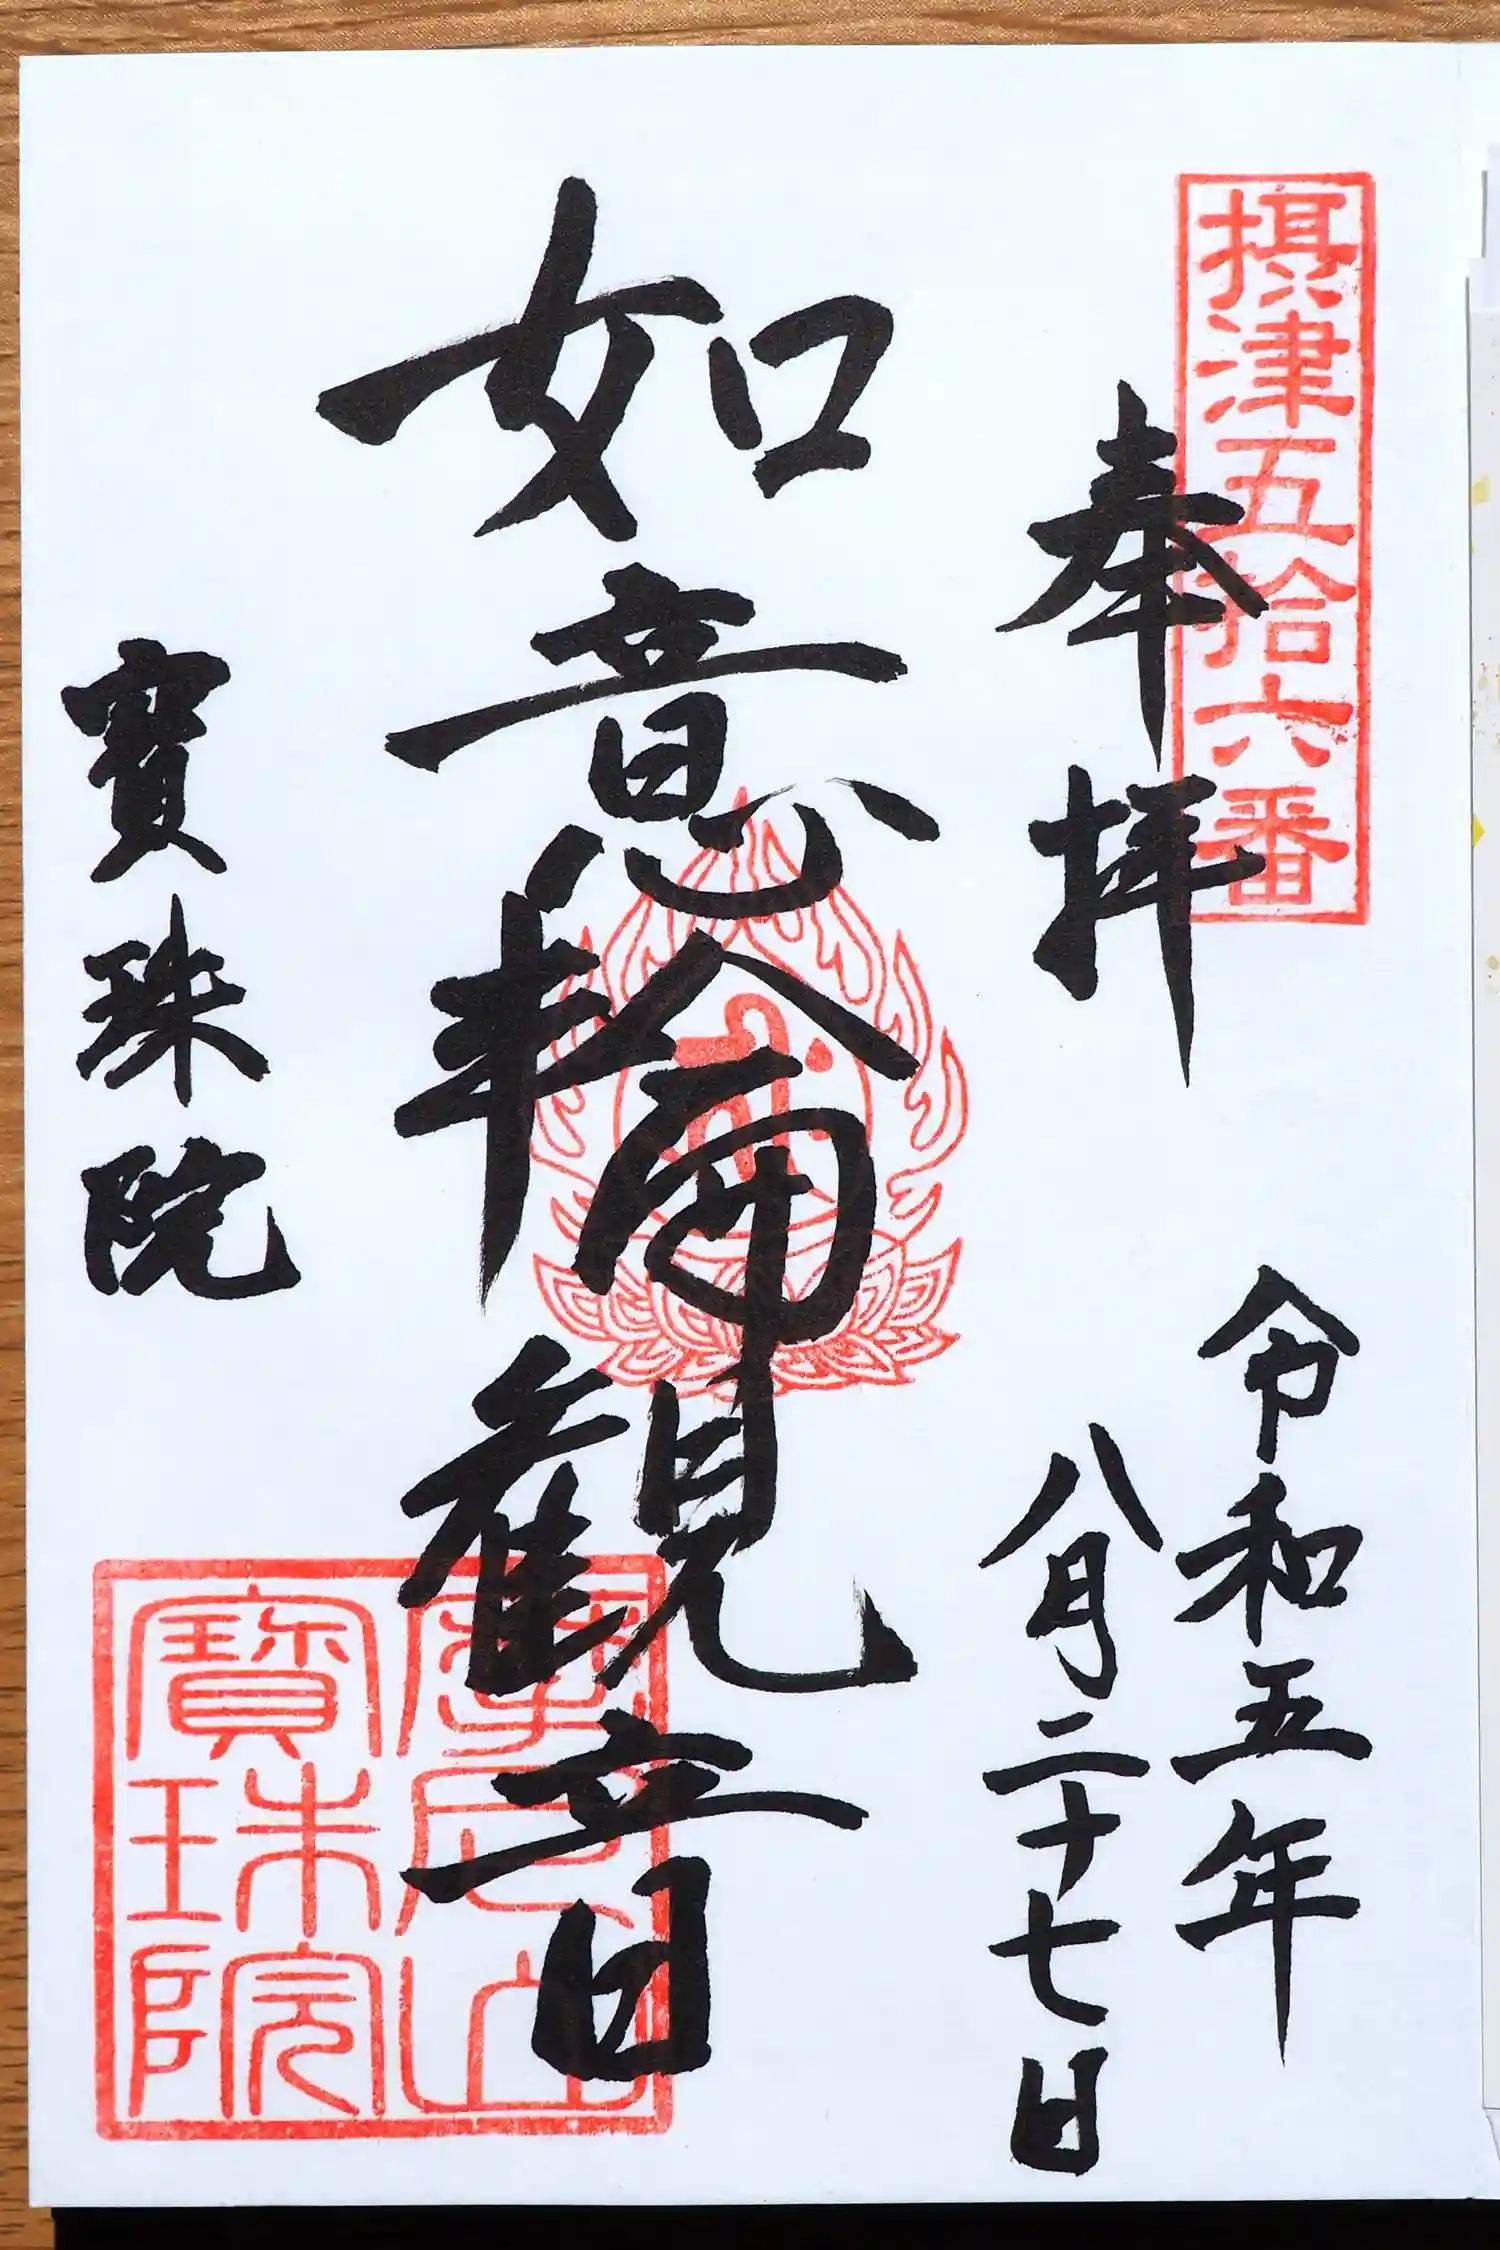 摂津五拾六番
奉拝
令和五年
八月二十七日
如意輪観音
寳珠院
摩尼山
寳珠院